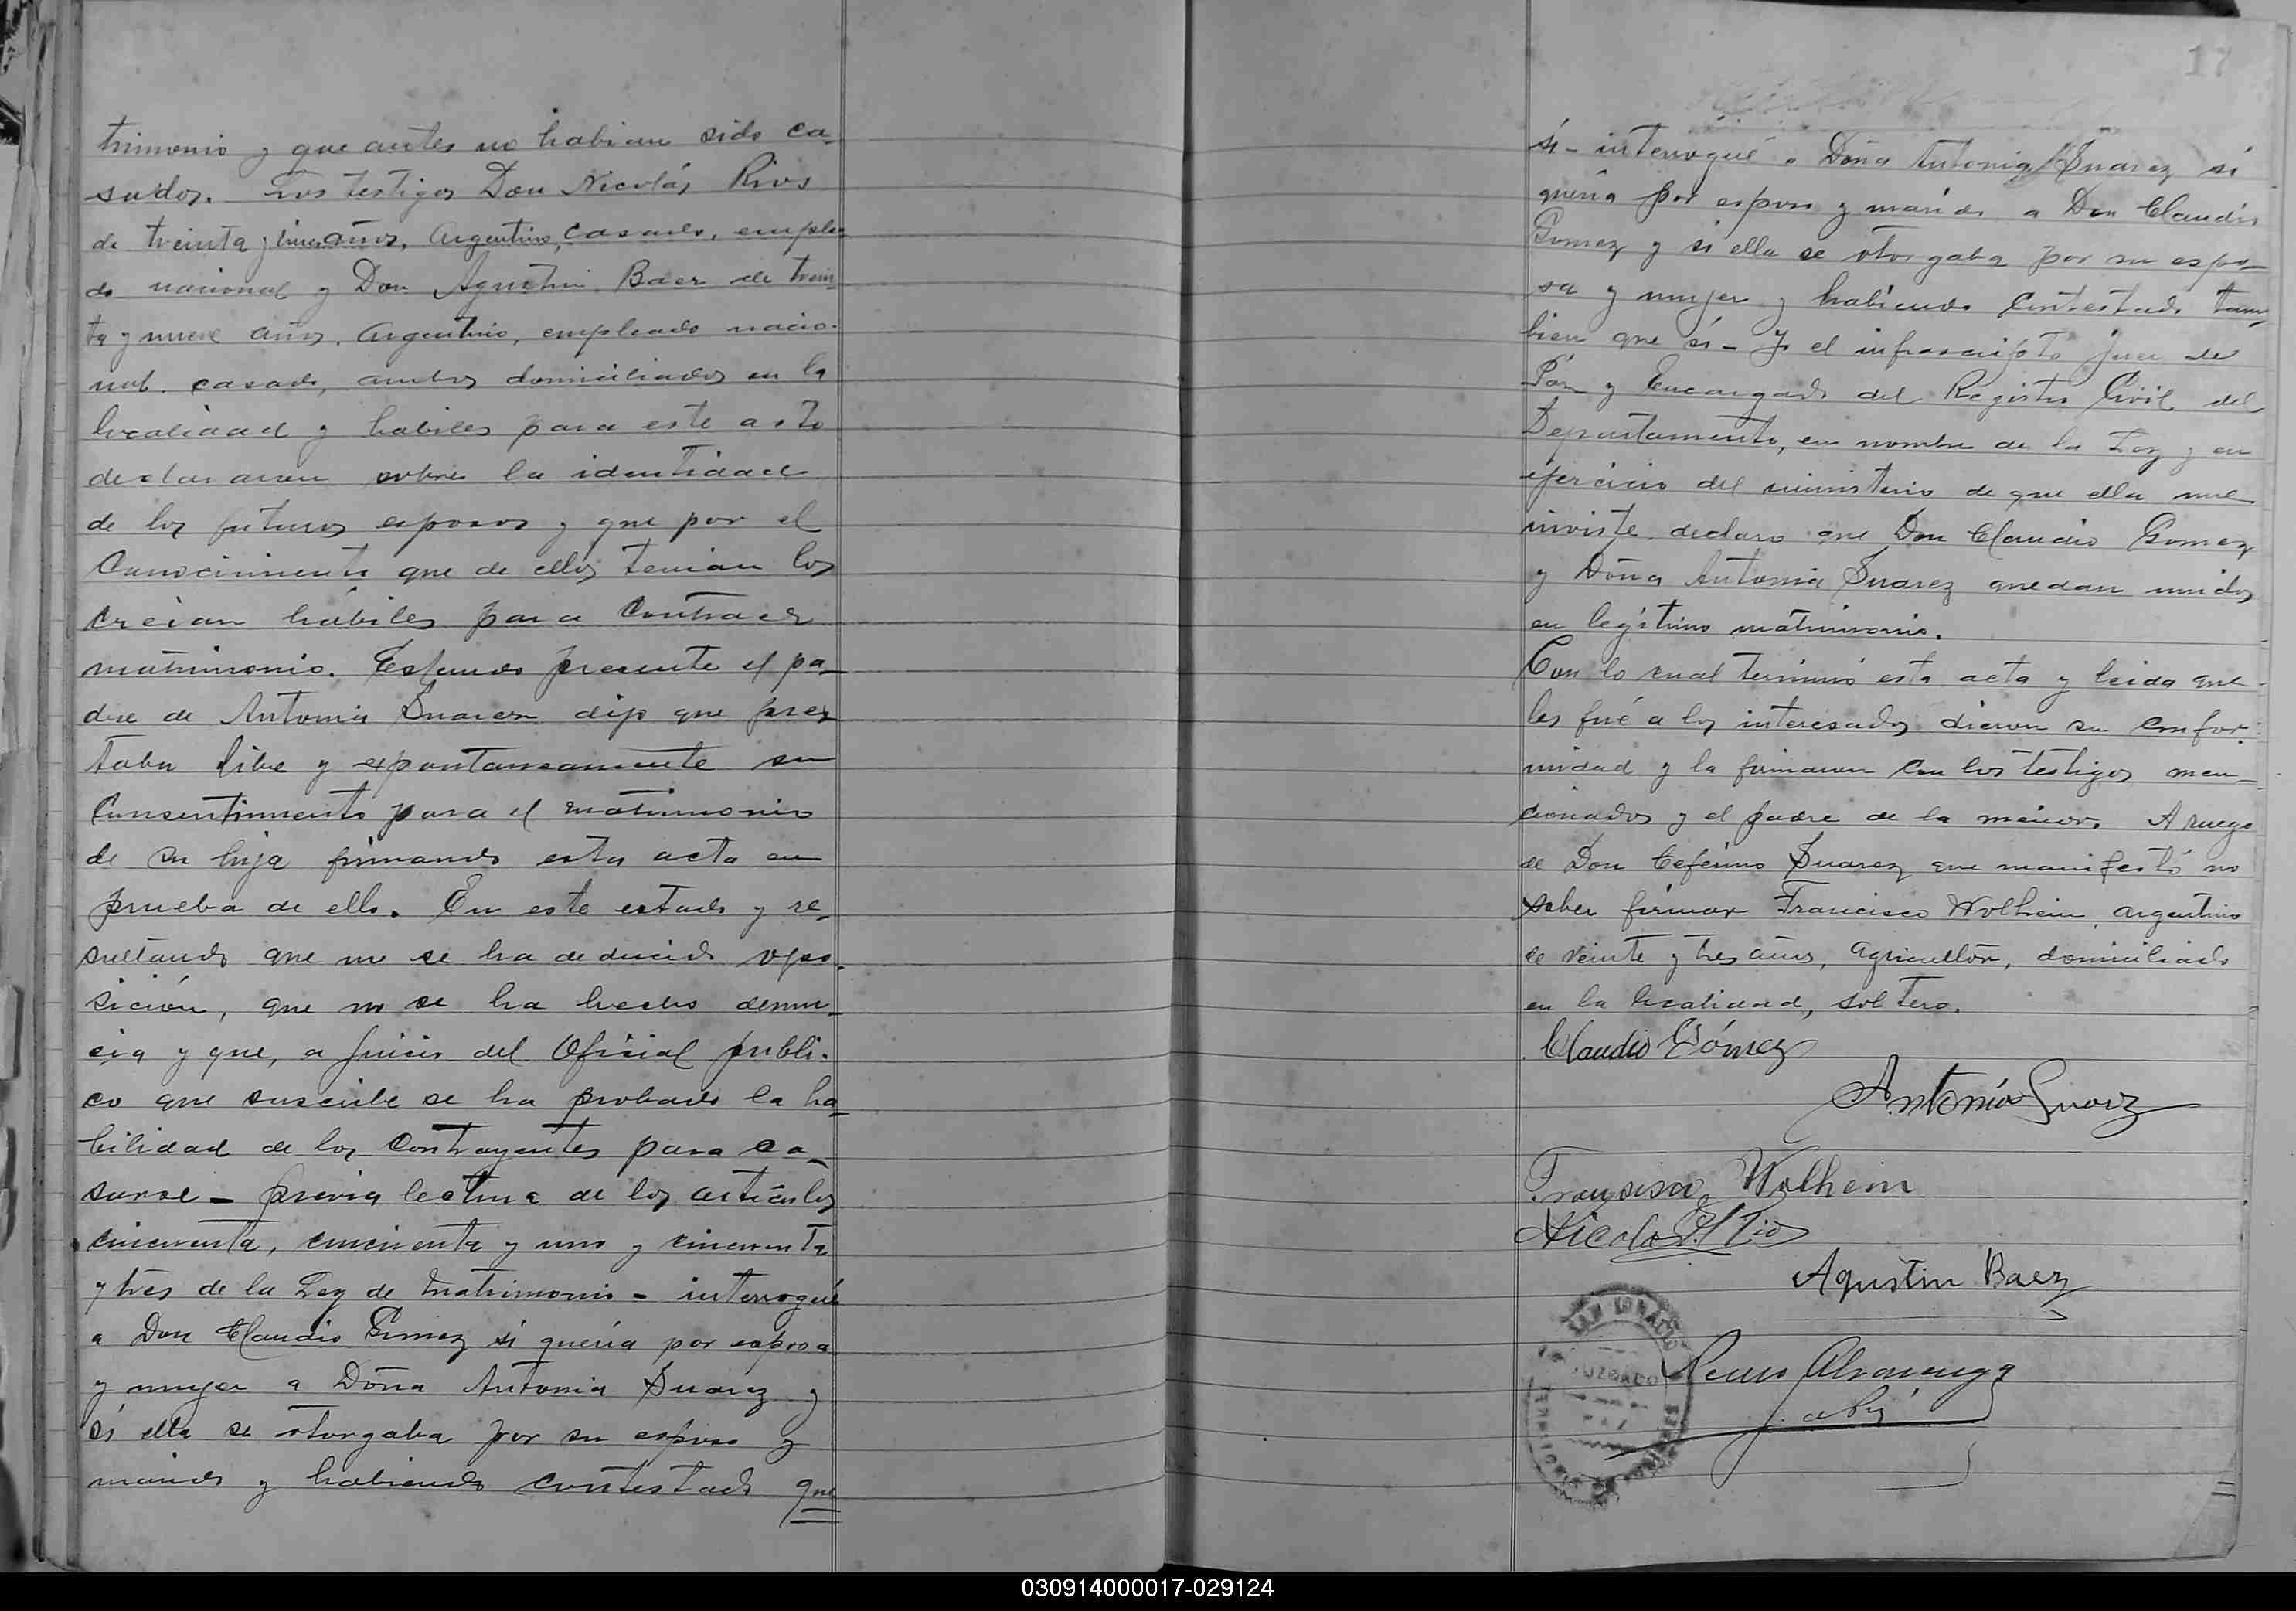 trimonio y que antes no habian sido ca-
sados. Los testigos Don Nicolás Rios
de treinta y años, Argentino, casado, emplea
do nacional y Don Agustin Baez de trein-
ta y nueve años, Argentino, empleado nacio-
nal, casado, ambos domiciliados en la
localidad y habiles para este acto
declararon sobre la identidad
de los futuros esposos y que por el
Conocimiento que de ellos tenian los
creian hábiles para Contraer
matrimonio. Estando presente el pa-
dre de Antonia Suarez dijo que pres
taba libre y espontaneamente su
Consentimiento para el matrimonio
de su hija firmando esta acta en
prueba de ello. En este estado y re-
sultando que no se ha deducido opo-
sición, que no se ha hecho denun-
cia y que, a juicio del Oficial públi-
co que suscribe se ha probado la ha-
bilidad de los Contrayentes para ca-
sarse - previa lectura de los artículos
cincuenta, cincuenta y uno y cincuenta
y tres de la Ley de Matrimonio - interrogué
a Don Claudio Gomez si queria por esposa
y mujer a Doña Antonia Suarez y
si ella se otorgaba por su esposo y
marido y habiendo contestado que
17
si - interrogué a Doña Antonia Suarez si
queria por esposo y marido a Don Claudio
Gomez y si ella se otorgaba por su espo-
sa y mujer y habiendo Contestado tam-
bien que si - Yo el infrascripto Juez de
Páz y Encargado del Registro Civil del
Departamento, en nombre de la Ley y en
ejercicio del ministerio de que ella me
inviste declaro que Don Claudio Gomez
y Doña Antonia Suarez quedan unidos
en legítimo matrimonio.
Con lo cual terminó esta acta y leida que
les fué a los interesados dieron su confor-
midad y la firmaron con los testigos men-
cionados y el padre de la menor. A ruego
de Don Ceferino Suarez que manifestó no
saber firmar Francisco Wolhein, argentino
de veinte y tres años, Agricultor, domiciliado
en la localidad, soltero.
Claudio Gómez
Antonia Suarez
Francisco Wolhein
Nicolas Rios
Agustin Baez
Alvarenga
J. de Paz
SAN IGNACIO
JUZGADO
030914000017-029124